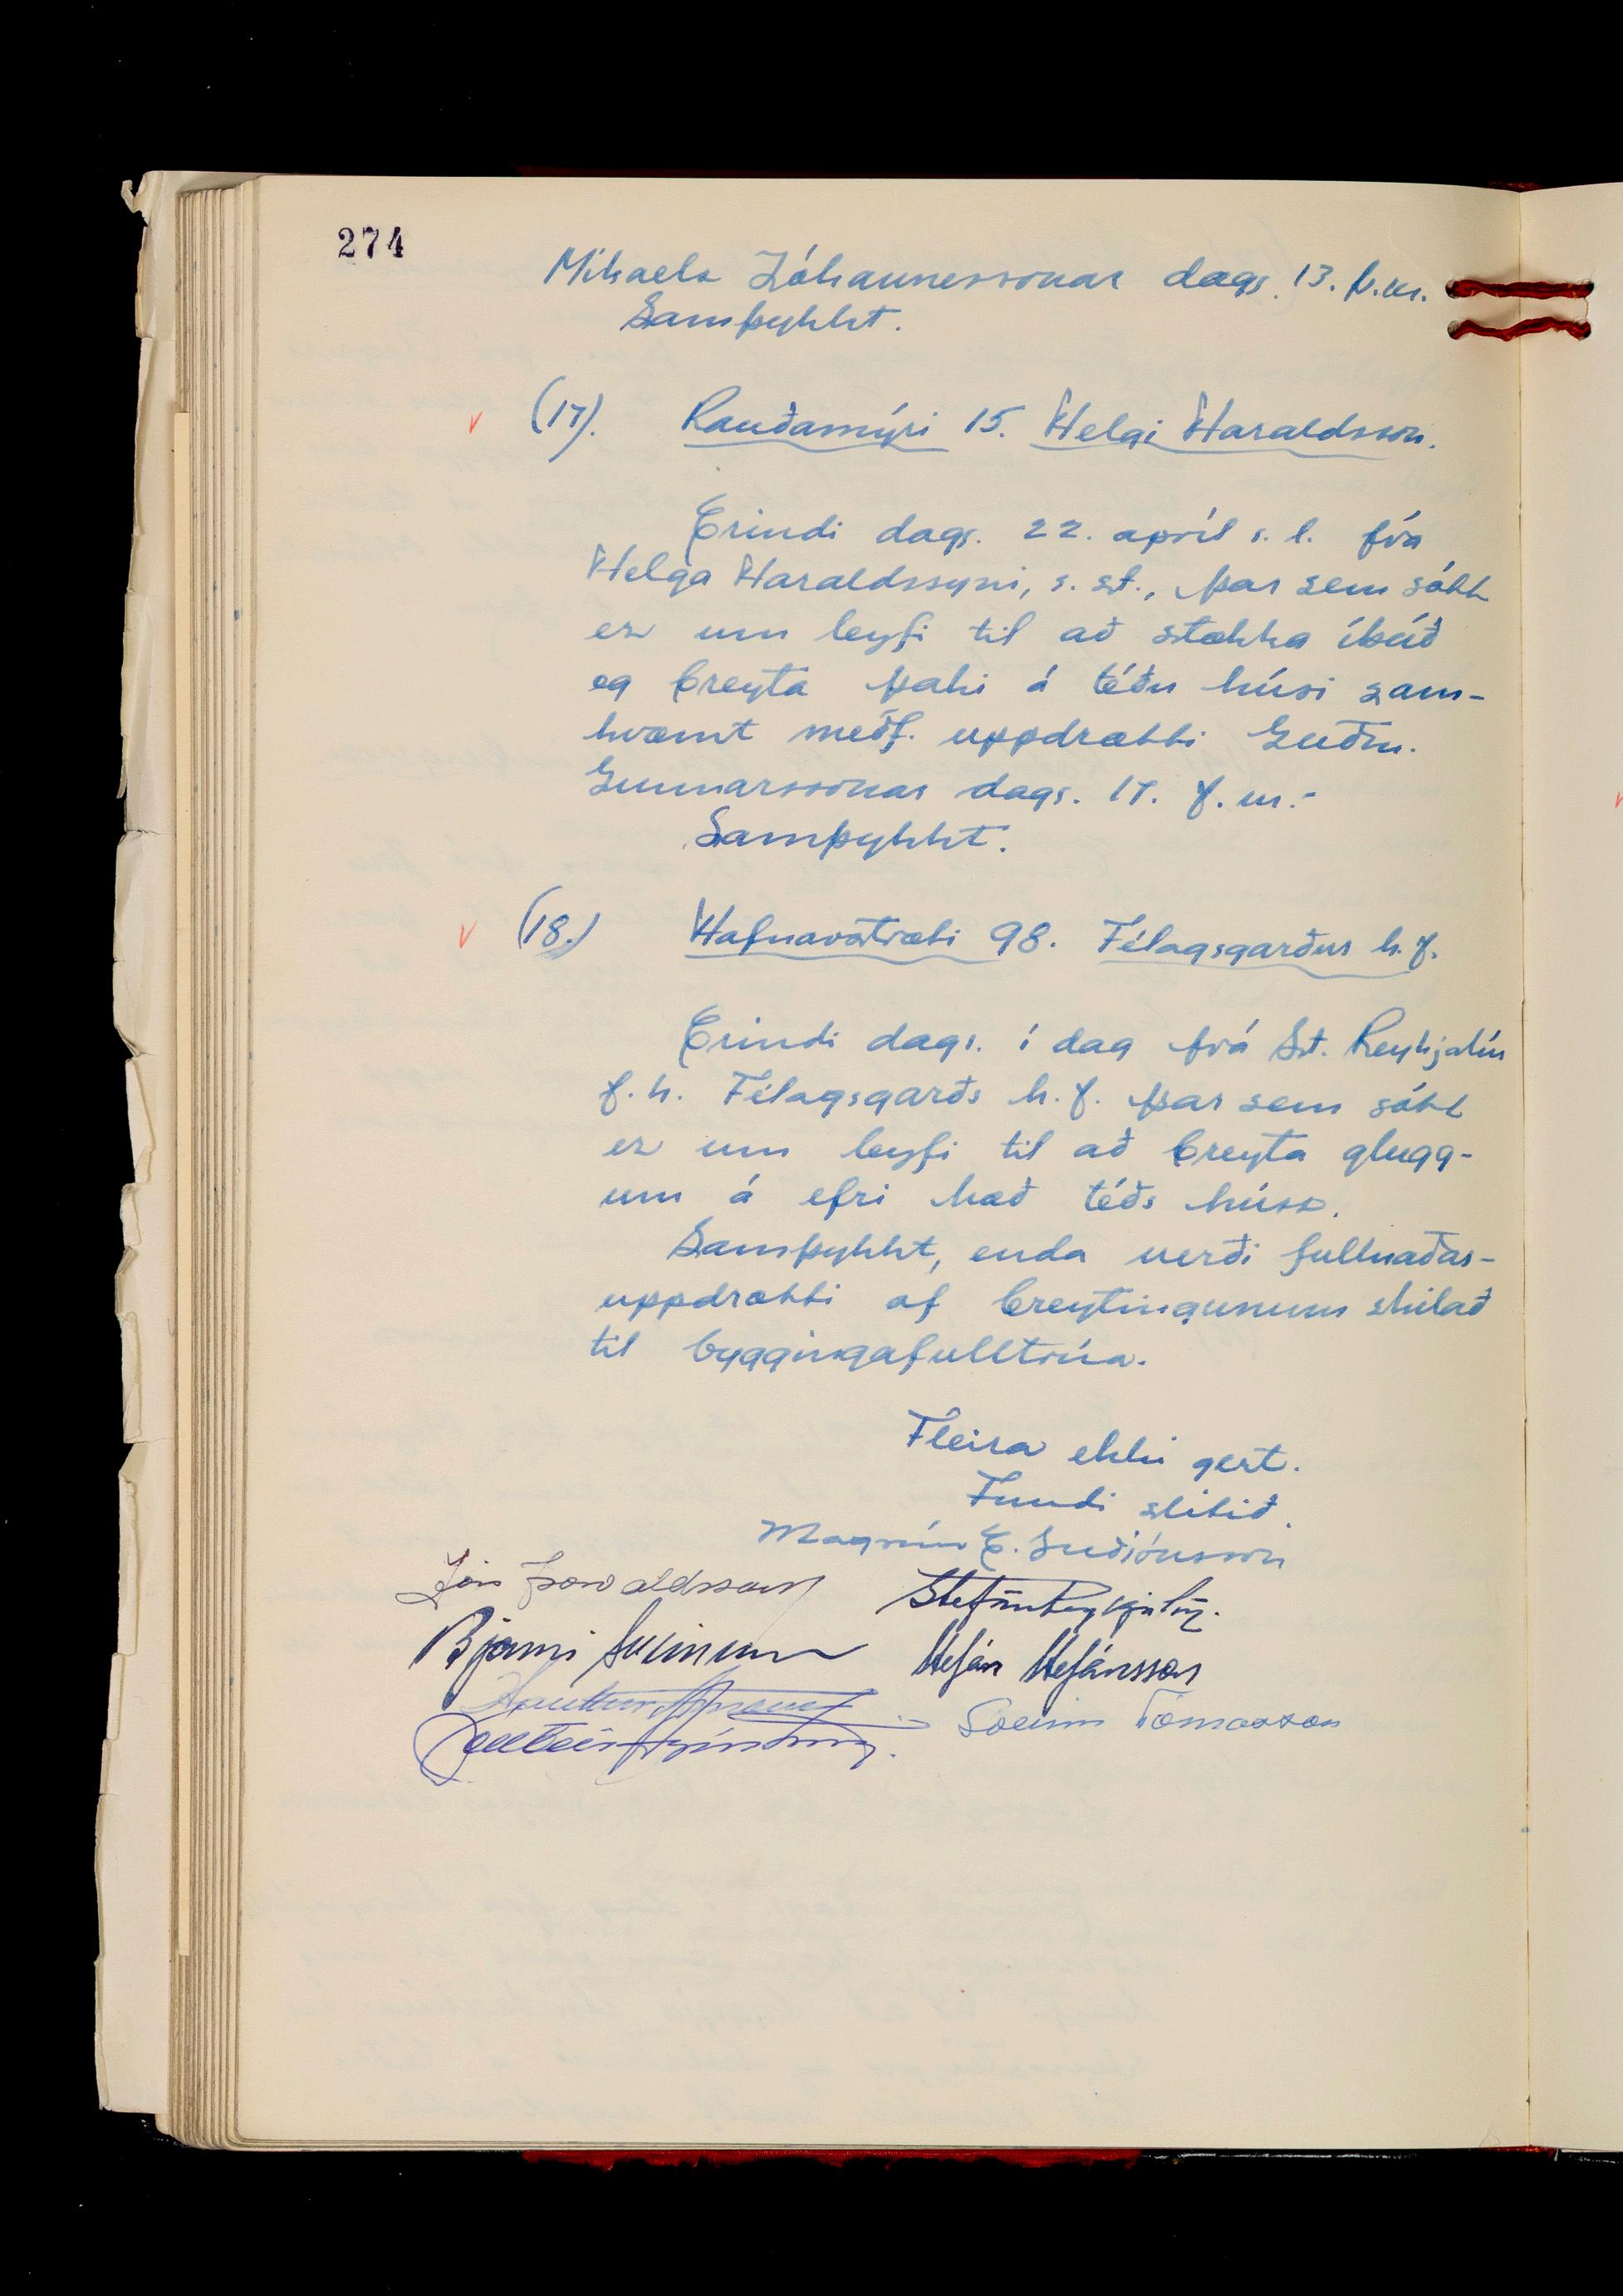 274
Mikaels Jóhannessonar dags. 13. þ.m.
Samþykkt.
(17). Rauðamýri 15. Helgi Haraldsson.
Erindi dags. 22. apríl s.l. frá
Helga Haraldssyni, s.st., þar sem sótt
er um leyfi til að stækka íbúð
og breyta þaki á téðu húsi sam-
kvæmt meðf. uppdrætti Guðm.
Gunnarssonar dags. 17. f.m.-
Samþykkt.
(18.) Hafnarstræti 98. Félagsgarður h.f.
Erindi dags. í dag frá St. Reykjalín
f.h. Félagsgarðs h.f. þar sem sótt
er um leyfi til að breyta glugg-
um á efri hæð téðs húss.
Samþykkt, enda verði fullnaðar-
uppdrætti af breytingunum skilað
til byggingafulltrúa.
Fleira ekki gert.
Fundi slitið.
Magnús E. Guðjónsson
Jón Þorvaldsson
Stefán Reykjalín.
Bjarni
Stefán Stefánsson
Sveinn Tómasson